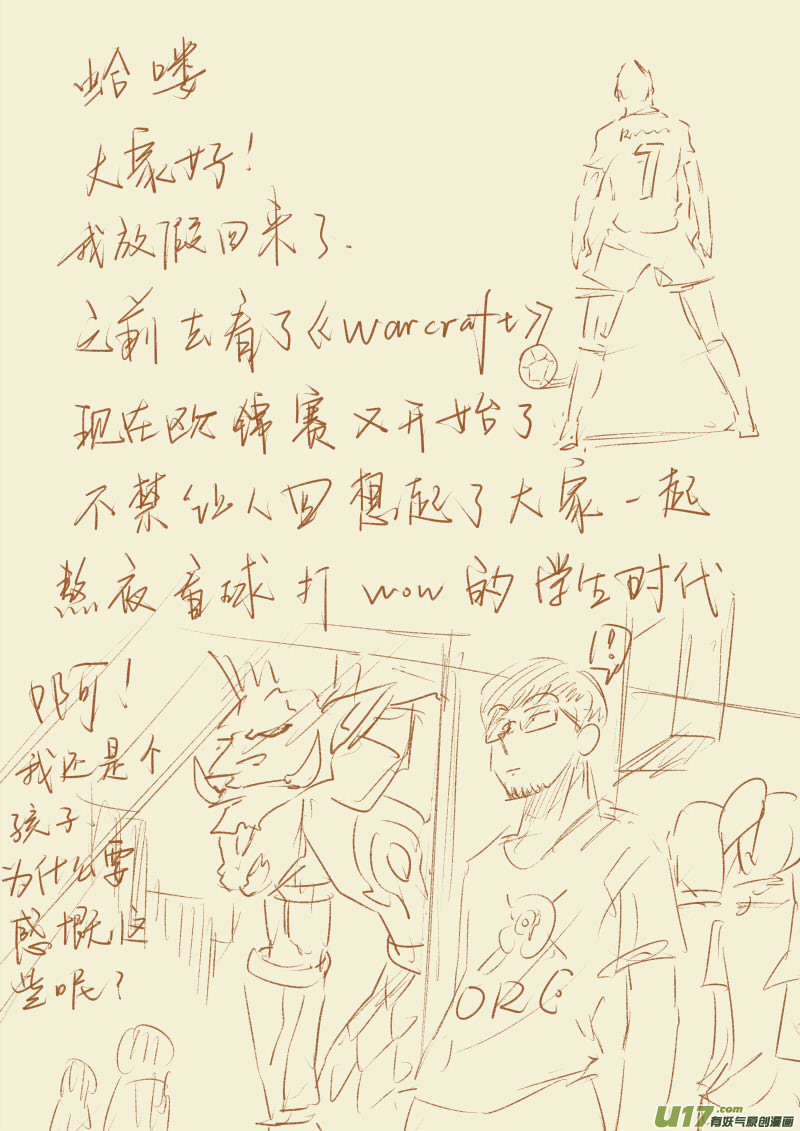 哈喽
大家好！
我放假回来了.
之前去看了《warcraft》
现在欧锦赛又开始了
不禁让人回想起了大家一起
熬夜看球打wow的学生时代
啊！
我还是个
孩子
为什么要
感慨这
些呢？
7
！
ORC
U17.com
有妖气原创漫画